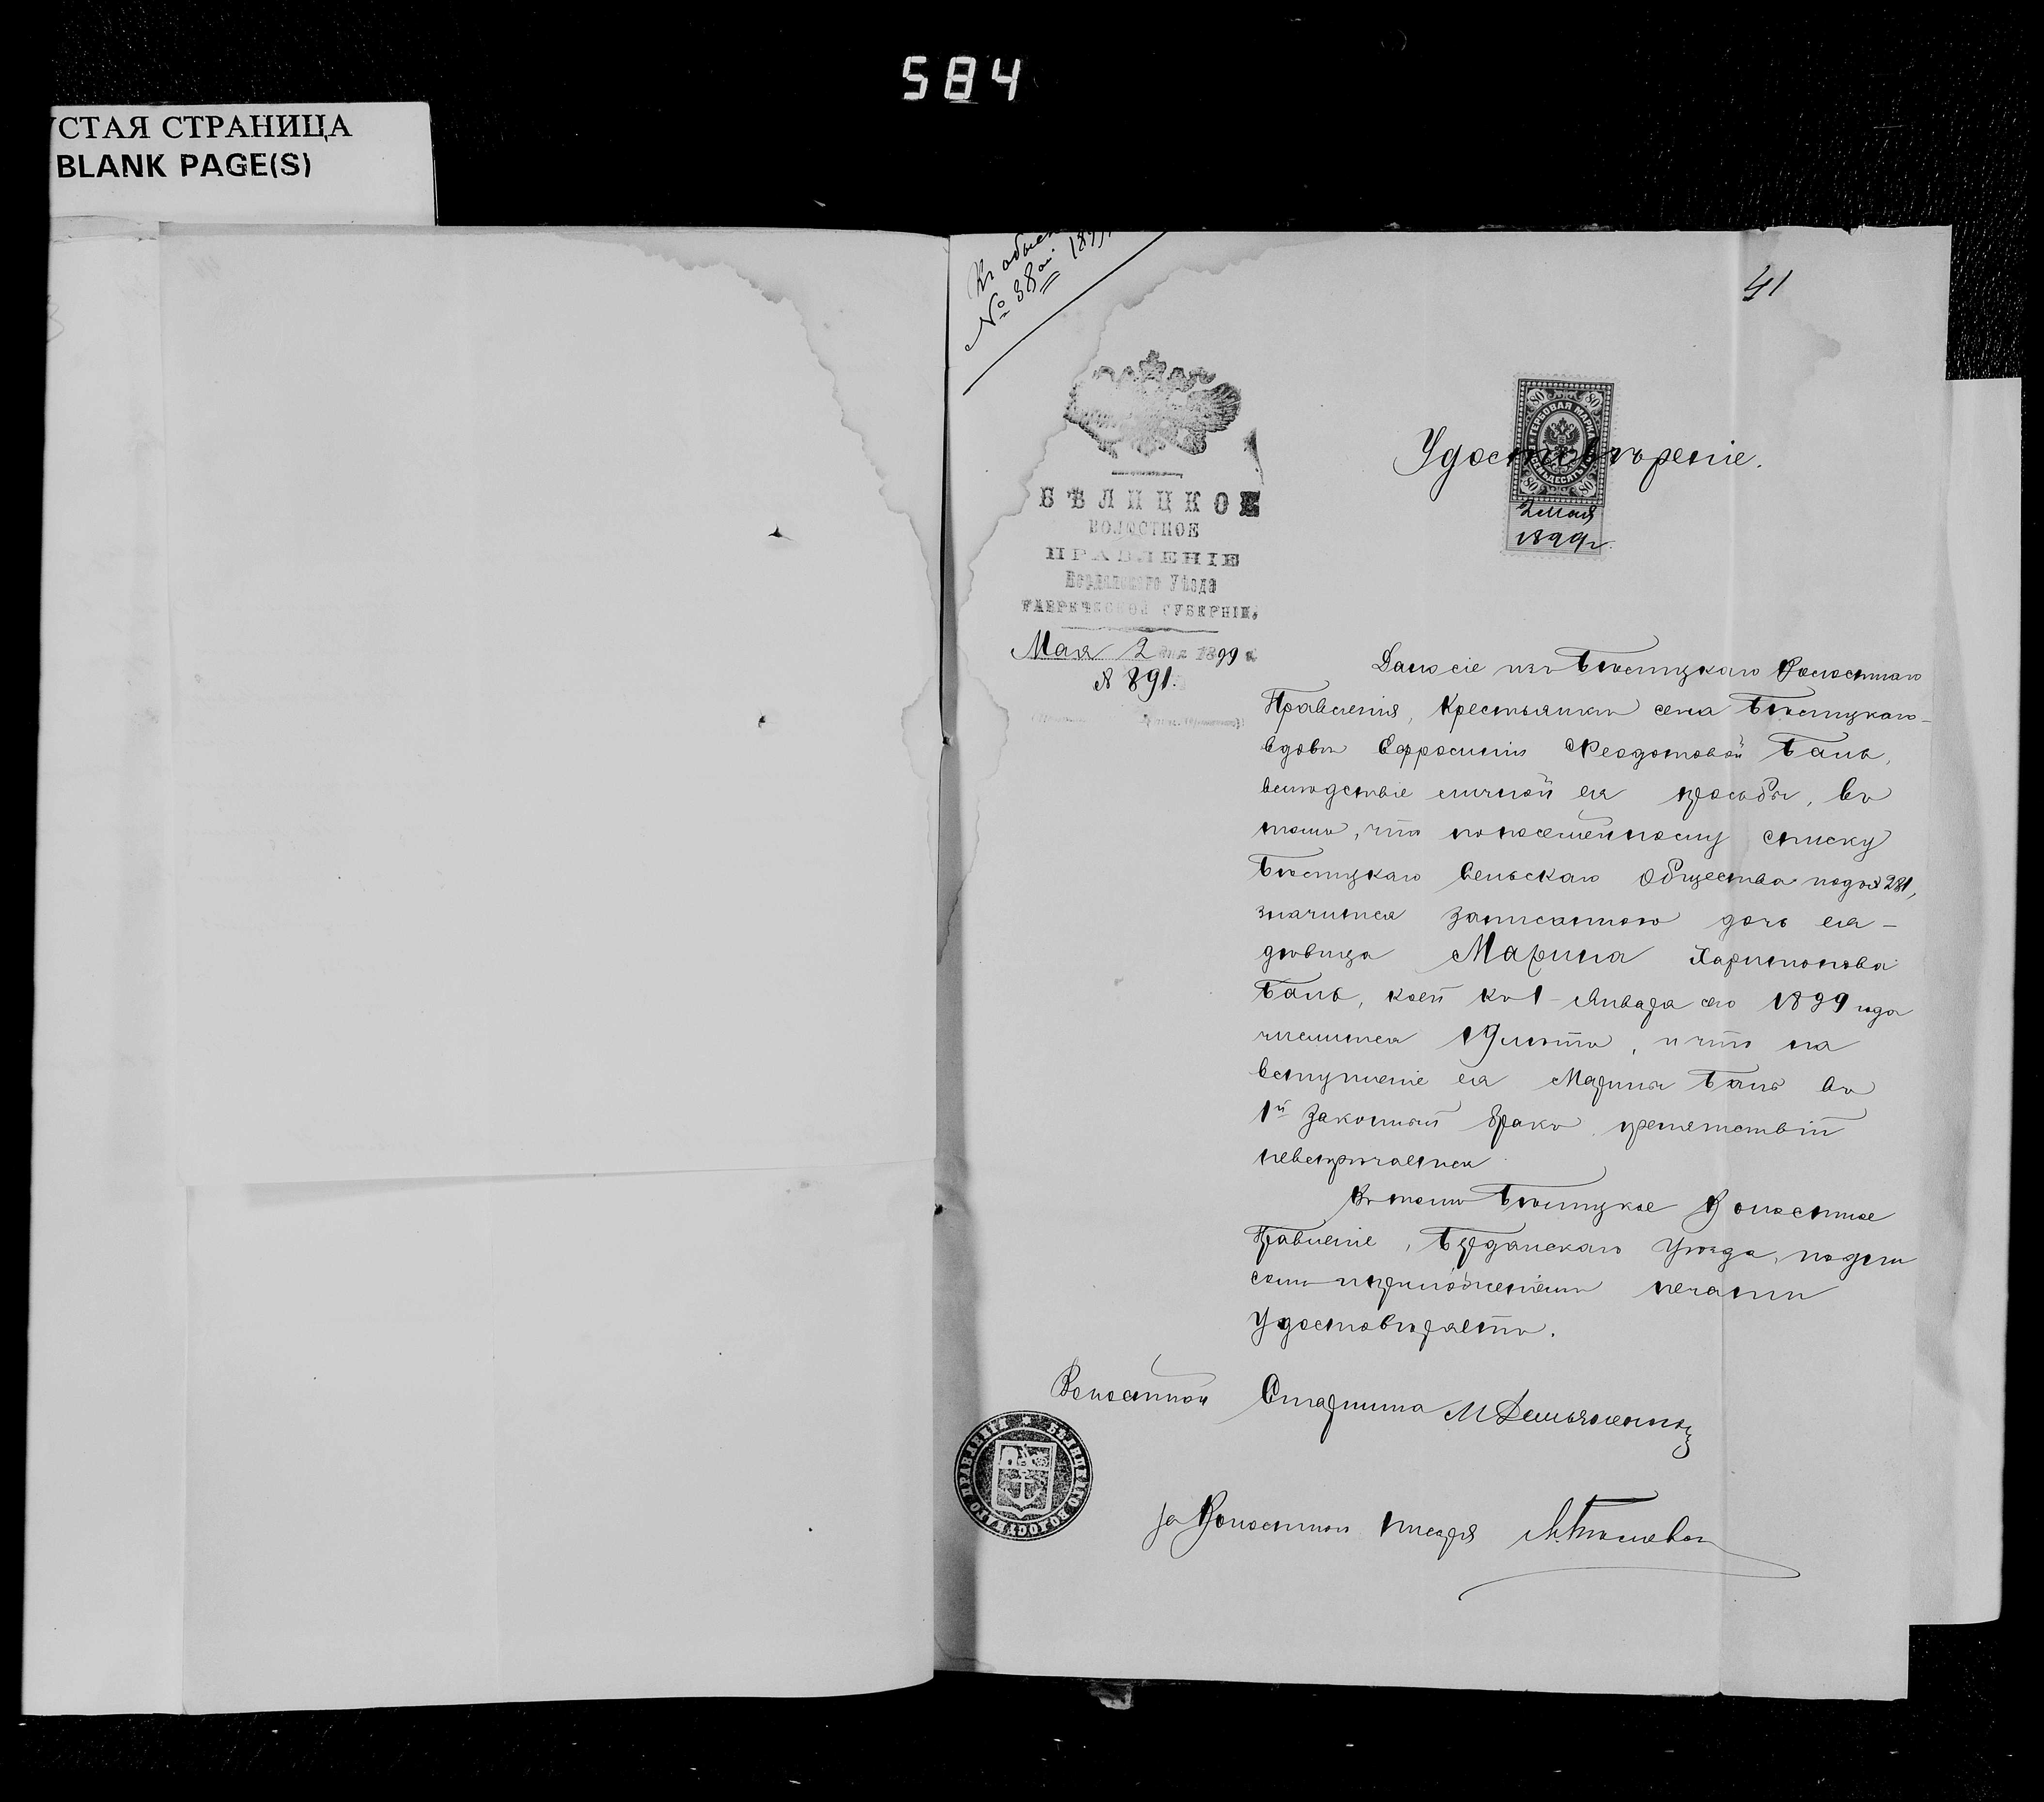 584
УСТАЯ СТРАНИЦА
BLANK PAGE(S)
№ 38ой 1899
41
Удостовѣреніе.
80 80
ГЕРБОВАЯ МАРКА
80 80
2 Мая
1899г.
БѢЛИЦКОЕ
ВОЛОСТНОЕ
ПРАВЛЕНІЕ
Бердянскаго Уѣзда
ТАВРИЧЕСКОЙ ГУБЕРНІИ.
Мая 2 дня 1899 г.
№ 891.
Дано сіе изъ Бѣлицкаго Волостнаго
Правленія, крестьянкѣ села Бѣлицкаго-
вдовѣ Евфросиніи Феодотовой Баль,
вслѣдствіе личной ея просьбы, въ
томъ, что по посемейному списку
Бѣлицкаго Сельскаго Общества подъ № 281,
значится записанною дочь ея-
дѣвица Марина Харитонова
Баль, коей къ 1 Января сего 1899 года
числится 19 лѣтъ, и что на
вступленіе ея Марины Баль въ
1й законный бракъ препятствій
невстрѣчается
Въ томъ Бѣлицкое Волостное
Правленіе, Бердянскаго Уѣзда, подпи
сомъ и приложеніемъ печати
удостовѣряетъ.
Волостной Старшина М Демьяненко
БѢЛИЦКАГО ВОЛОСТНАГО ПРАВЛЕНІЯ
за Волостного писаря